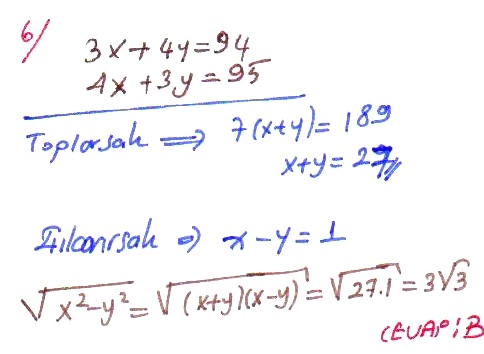 6/
3x+4y=94
4x+3y=95
Toplarsak ⟹ 7(x+y)=189
x+y=27//
Çıkarırsak ⇒ x-y=1
√(x²-y²)=√((x+y)(x-y))=√(27.1)=3√3
CEVAP: B